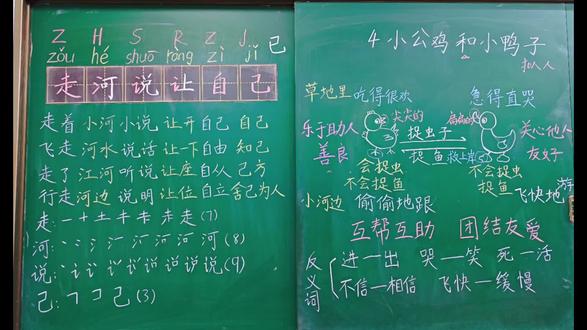 Z H S R Z J
zǒu hé shuō ràng zì jǐ 己
走 河 说 让 自 己
走着 小河 小说 让开 自己 自己
飞走 河水 说话 让一下 自由 知己
走了 江河 听说 让座 自从 己方
行走 河边 说明 让位 自立 舍己为人
走: 一 十 土 キ 走 走 (7)
河: 丶 氵 河 河 (8)
说: 讠 说 说 说 (9)
己: ㄱ コ 己 (3)
4 小公鸡和小鸭子
草地里 吃得很欢 急得直哭
乐于助人 善良
尖尖的 扁扁的
捉虫子
捉鱼 救上岸
关心他人 友好
会捉虫 不会捉鱼
不会捉虫 捉鱼
小河边 偷偷地跟 飞快地 游
互帮互助 团结友爱
反义词
进—出 哭—笑 死—活
不信—相信 飞快—缓慢